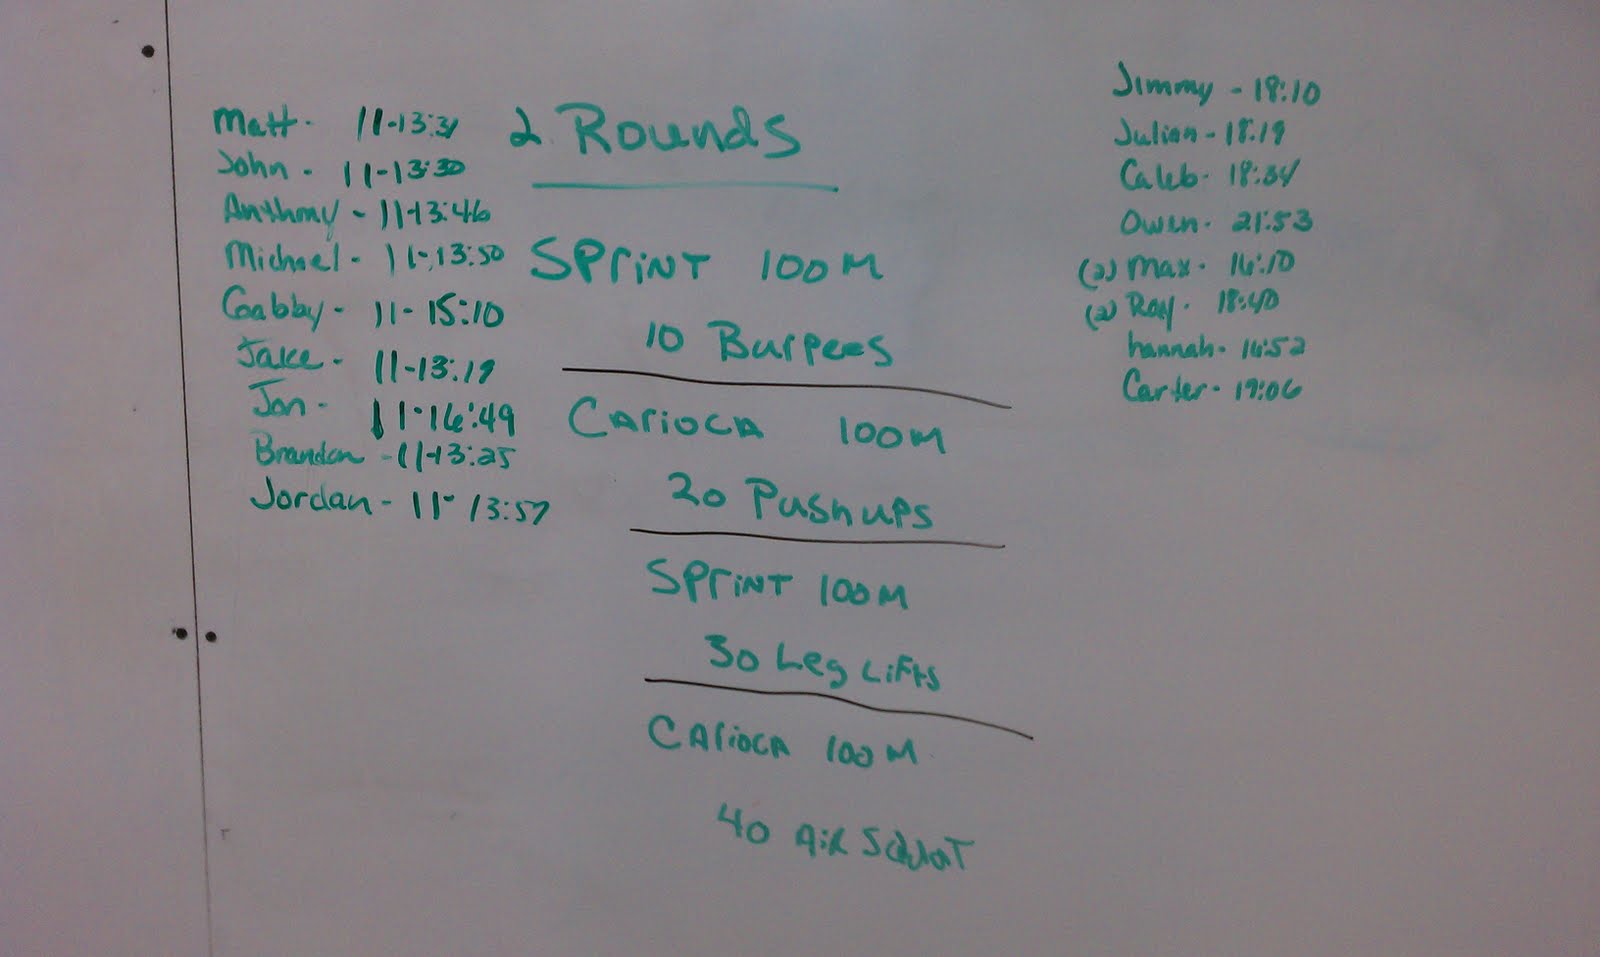 Matt - 11-13:31
John - 11-13:30
Anthony - 11-13:46
Michael - 11-13:50
Gabby - 11-15:10
Jake - 11-13:19
Jon - 11-16:49
Brandon - 11-13:25
Jordan - 11-13:57
2 Rounds
SPriNT 100M
10 Burpees
CArioCA 100M
20 Pushups
SPriNT 100M
30 Leg Lifts
CArioCA 100M
40 Air SQuaT
Jimmy - 18:10
Julian - 18:19
Caleb - 18:34
Owen - 21:53
(2) Max - 16:10
(2) Ray - 18:40
hannah - 16:52
Carter - 19:06